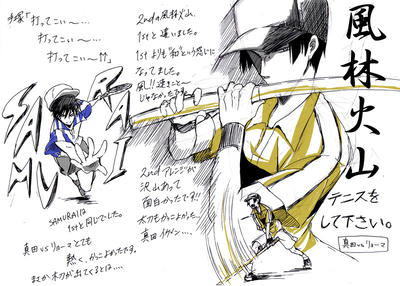 手塚「打ってこい〜…
打ってこい〜…
打ってこい〜…!!」
SAMURAI
SAMURAIは
1stと同じでした。
真田vsリョーマとても
熱く、かっこよかったです。
まさか木刀が出てくるとは…
2ndの風林火山、
1stと違いました。
1stよりも"和"という感じに
なってました。
風!!速きこと〜
じゃなかったです。
2ndアレンジが
沢山あって
面白かったです!!
太刀もかっこよかった。
真田イケメン…
風林火山
テニスを
して下さい。
真田vsリョーマ